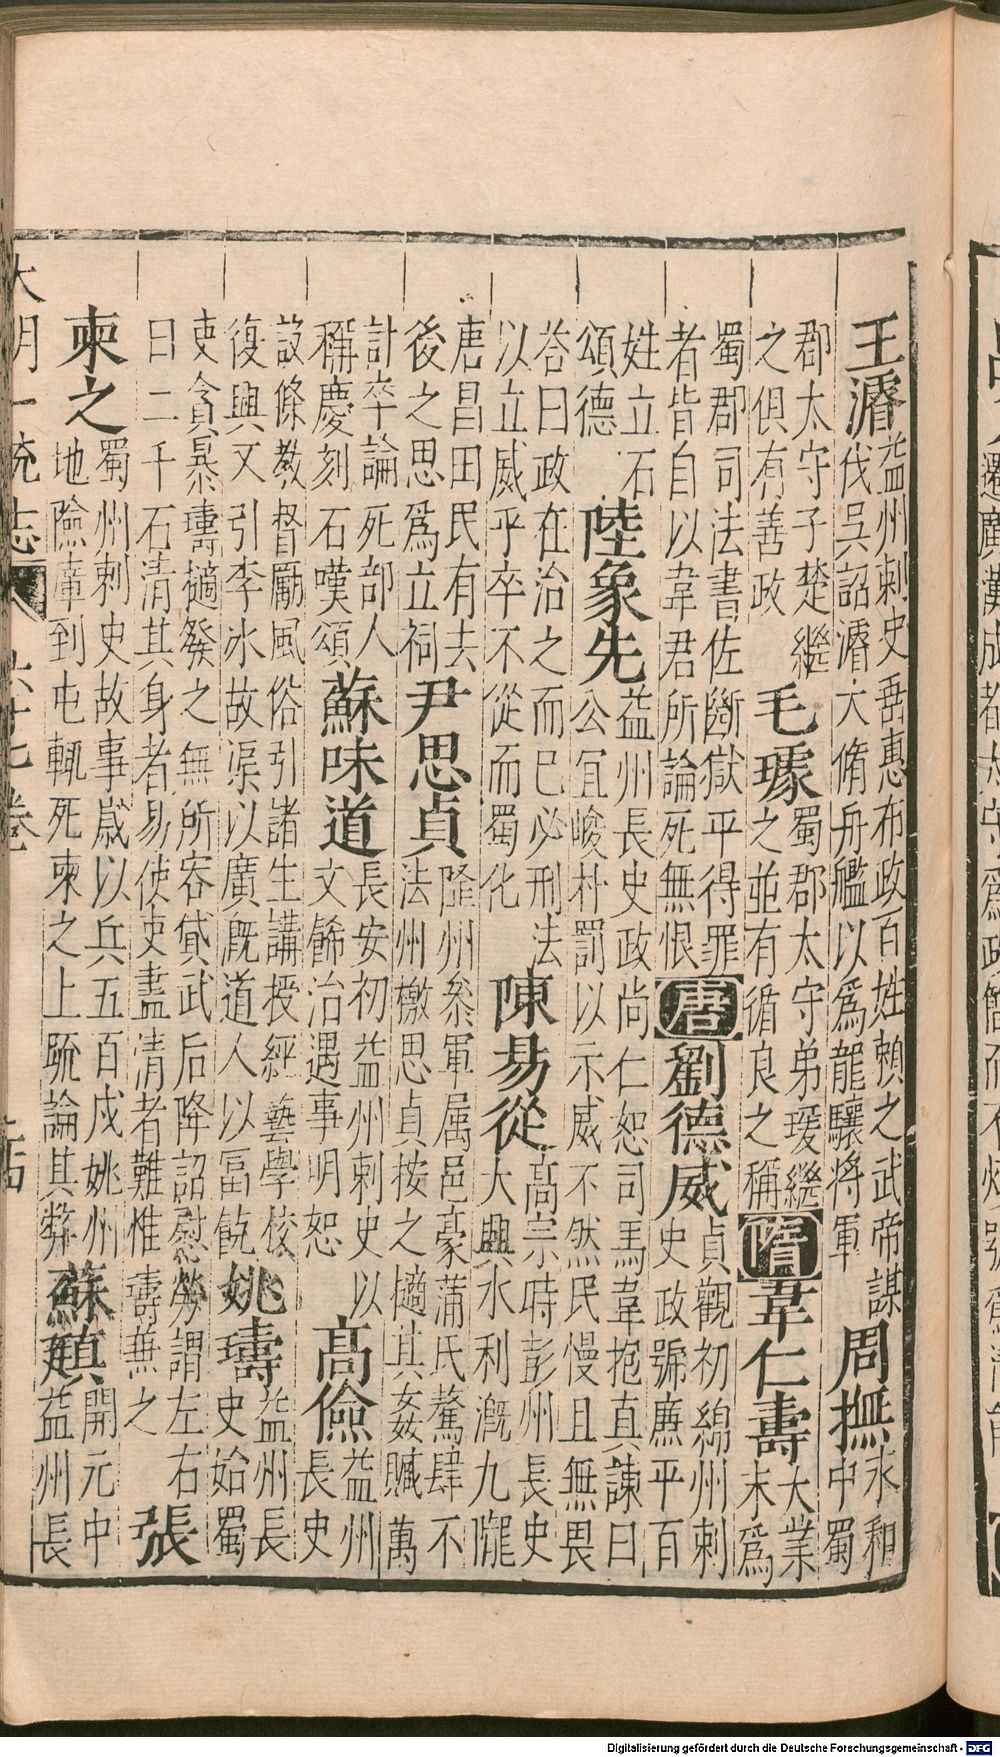 王濬 益州刺史吾惠布政百姓賴之武帝謀
伐吳詔濬大脩舟艦以爲龍驤將軍 周撫 永和
中蜀
郡太守子楚繼
之俱有善政 毛璩 蜀郡太守弟瑗繼
之並有循良之稱 隋 韋仁壽 大業
末爲
蜀郡司法書佐斷獄平得罪
者皆自以韋君所論死無恨 唐 劉德威 貞觀初綿州刺
史政號廉平百
姓立石
頌德 陸象先 益州長史政尚仁恕司馬韋抱真諫曰
公宜峻朴罰以示威不然民慢且無畏
荅曰政在治之而已必刑法
以立威乎卒不從而蜀化 陳易從 高宗時彭州長史
大興水利漑九隴
唐昌田民有去
後之思爲立祠 尹思貞 隆州叅軍属邑豪蒲氏驁肆不
法州檄思貞按之擿其姦贓萬
計卒論死部人
稱慶刻石嘆頌 蘇味道 長安初益州刺史以
文飾治遇事明恕 高儉 益州
長史
設條敎督勵風俗引諸生講授經藝學校
復興又引李冰故渠以廣漑道人以富飫 姚璹 益州長
史始蜀
吏貪暴璹擿發之無所容貸武后降詔慰勞謂左右
曰二千石清其身者易使吏盡清者難惟璹兼之 張
柬之 蜀州刺史故事歲以兵五百戍姚州
地險瘴到屯輒死柬之上䟽論其弊 蘇頲 開元中
益州長
大明一統志 六十七卷 十四
Digitalisierung gefördert durch die Deutsche Forschungsgemeinschaft - DFG